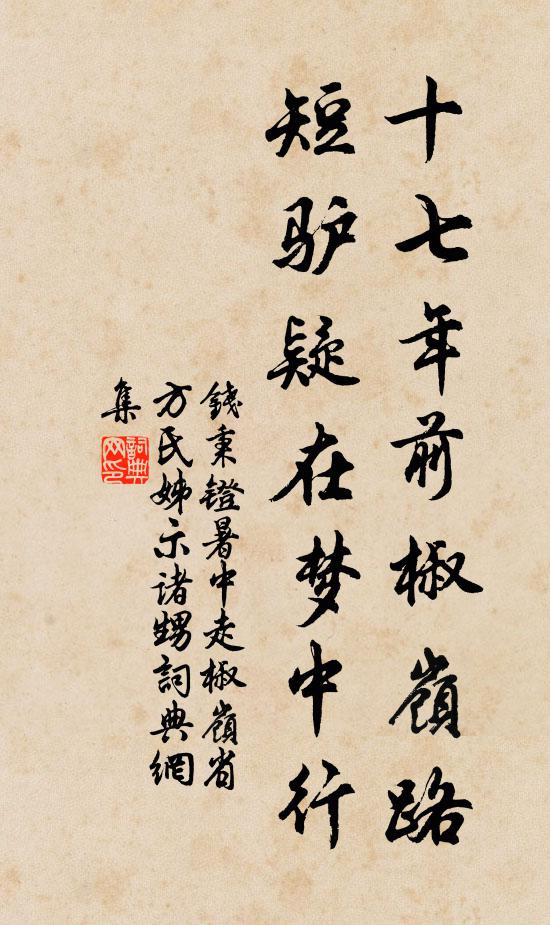 十七年前椒嶺路
短驴疑在梦中行
錢秉鐙暑中走椒嶺省
方氏姊示诸甥詞典網
集
詞典网印